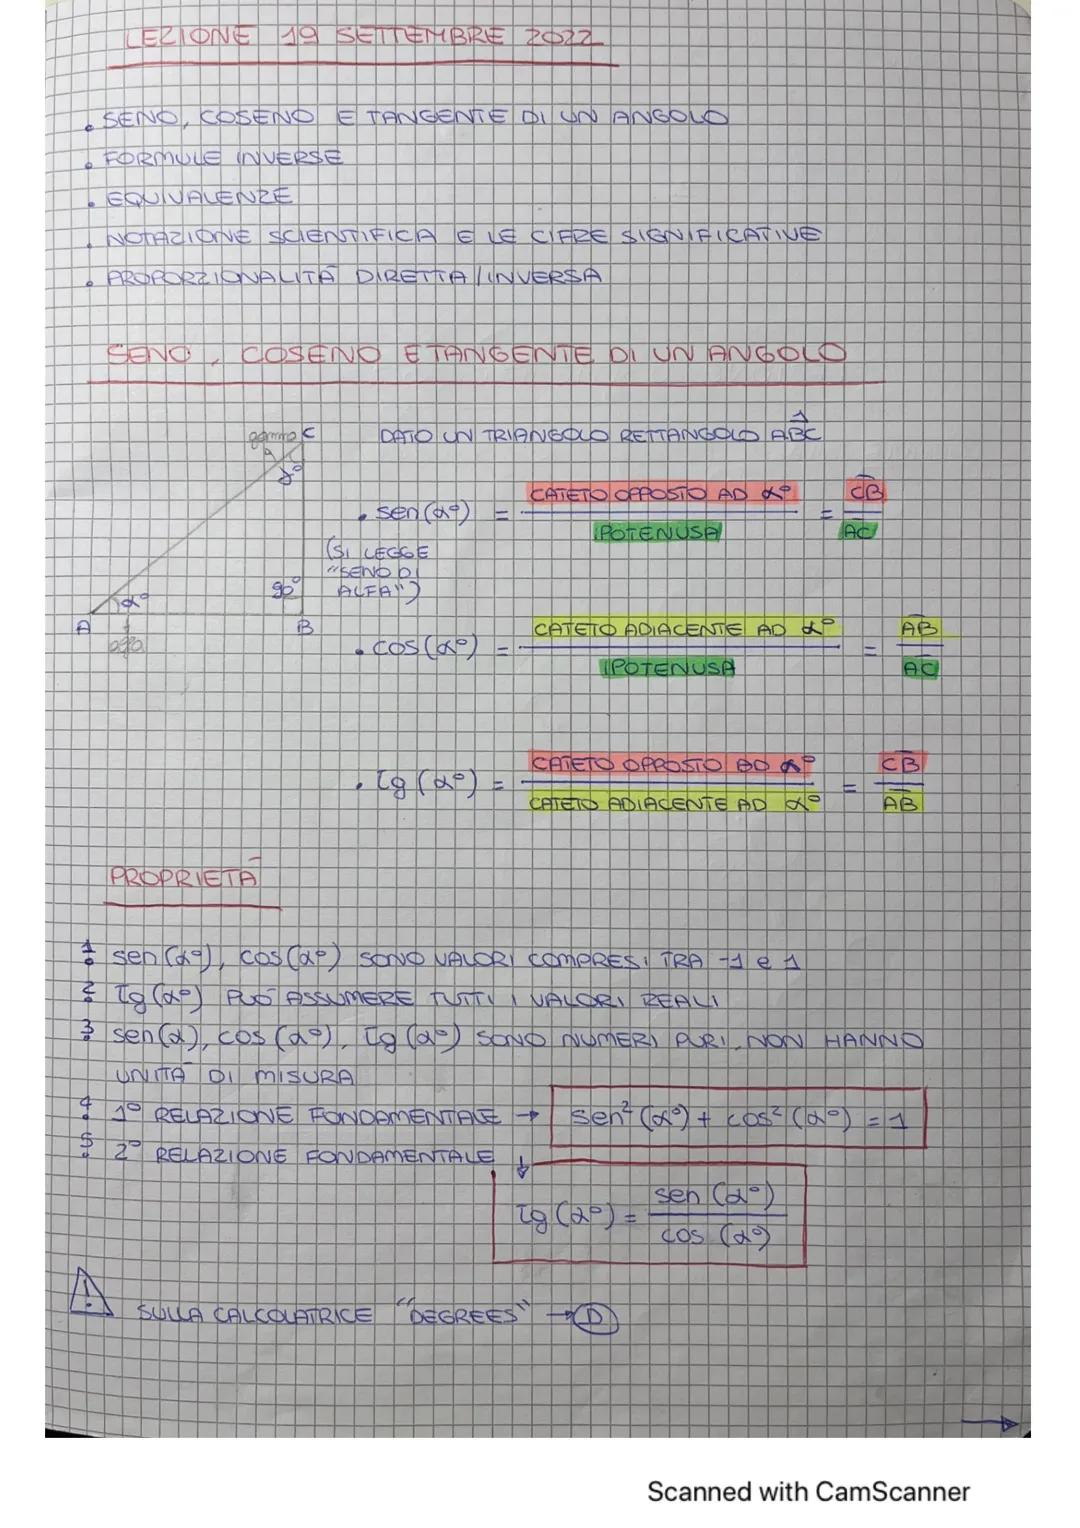 LEZIONE 19 SETTEMBRE 2022
• SENO, COSENO E TANGENTE DI UN ANGOLO
• FORMULE INVERSE
• EQUIVALENZE
• NOTAZIONE SCIENTIFICA E LE CIFRE SIGNIFICATIVE
• PROPORZIONALITÀ DIRETTA/INVERSA
SENO, COSENO E TANGENTE DI UN ANGOLO
gamma C
γ°
90°
α°
A
B
DATO UN TRIANGOLO RETTANGOLO ABC
• sen(α°) = CATETO OPPOSTO AD α° / IPOTENUSA = CB / AC
(SI LEGGE
"SENO DI
ALFA")
• cos(α°) = CATETO ADIACENTE AD α° / IPOTENUSA = AB / AC
• tg(α°) = CATETO OPPOSTO AD α° / CATETO ADIACENTE AD α° = CB / AB
PROPRIETÀ
1: sen(α°), cos(α°) SONO VALORI COMPRESI TRA -1 e 1
2: tg(α°) PUÒ ASSUMERE TUTTI I VALORI REALI
3: sen(α), cos(α°), tg(α°) SONO NUMERI PURI, NON HANNO
UNITÀ DI MISURA
4: 1° RELAZIONE FONDAMENTALE → sen²(α°) + cos²(α°) = 1
5: 2° RELAZIONE FONDAMENTALE ↓
tg(α°) = sen(α°) / cos(α°)
⚠ SULLA CALCOLATRICE "DEGREES" → D
→
Scanned with CamScanner